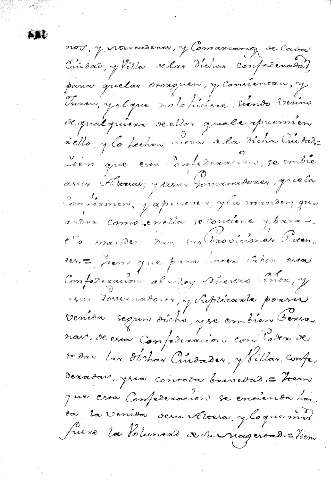 nos, y Moradores, y Comarcanos de Cada
Ciudad, y Villa de las dichas confederadas,
para que las otorguen, y consientan, y
Juren, y el que no lo hiciere, siendo vecino
de qualquiera de ellas que le apremien
a ello y lo hechen fuera de la dicha Ciudad=
Iten que esta Confederacion, se embie
a su Alteza, y a sus Governadores, que la
Confirmen, y aprueven, y la manden guardar
como en ella se contiene, y para
ello manden dar sus Provisiones
= Item que para mas esta
Confederacion a el Rey Nuestro Señor, y
sus Governadores, y Suplicarle por su
venida segun dicho, y se embien Personas
de esta Confederacion con Poder de
todas las dichas Ciudades, y Villas, confederadas,
y sea con toda brevedad.= Item
que esta Confederacion se entienda hasta
la venida de su Alteza, y lo que mas
fuere la Voluntad de su Magestad.= Item